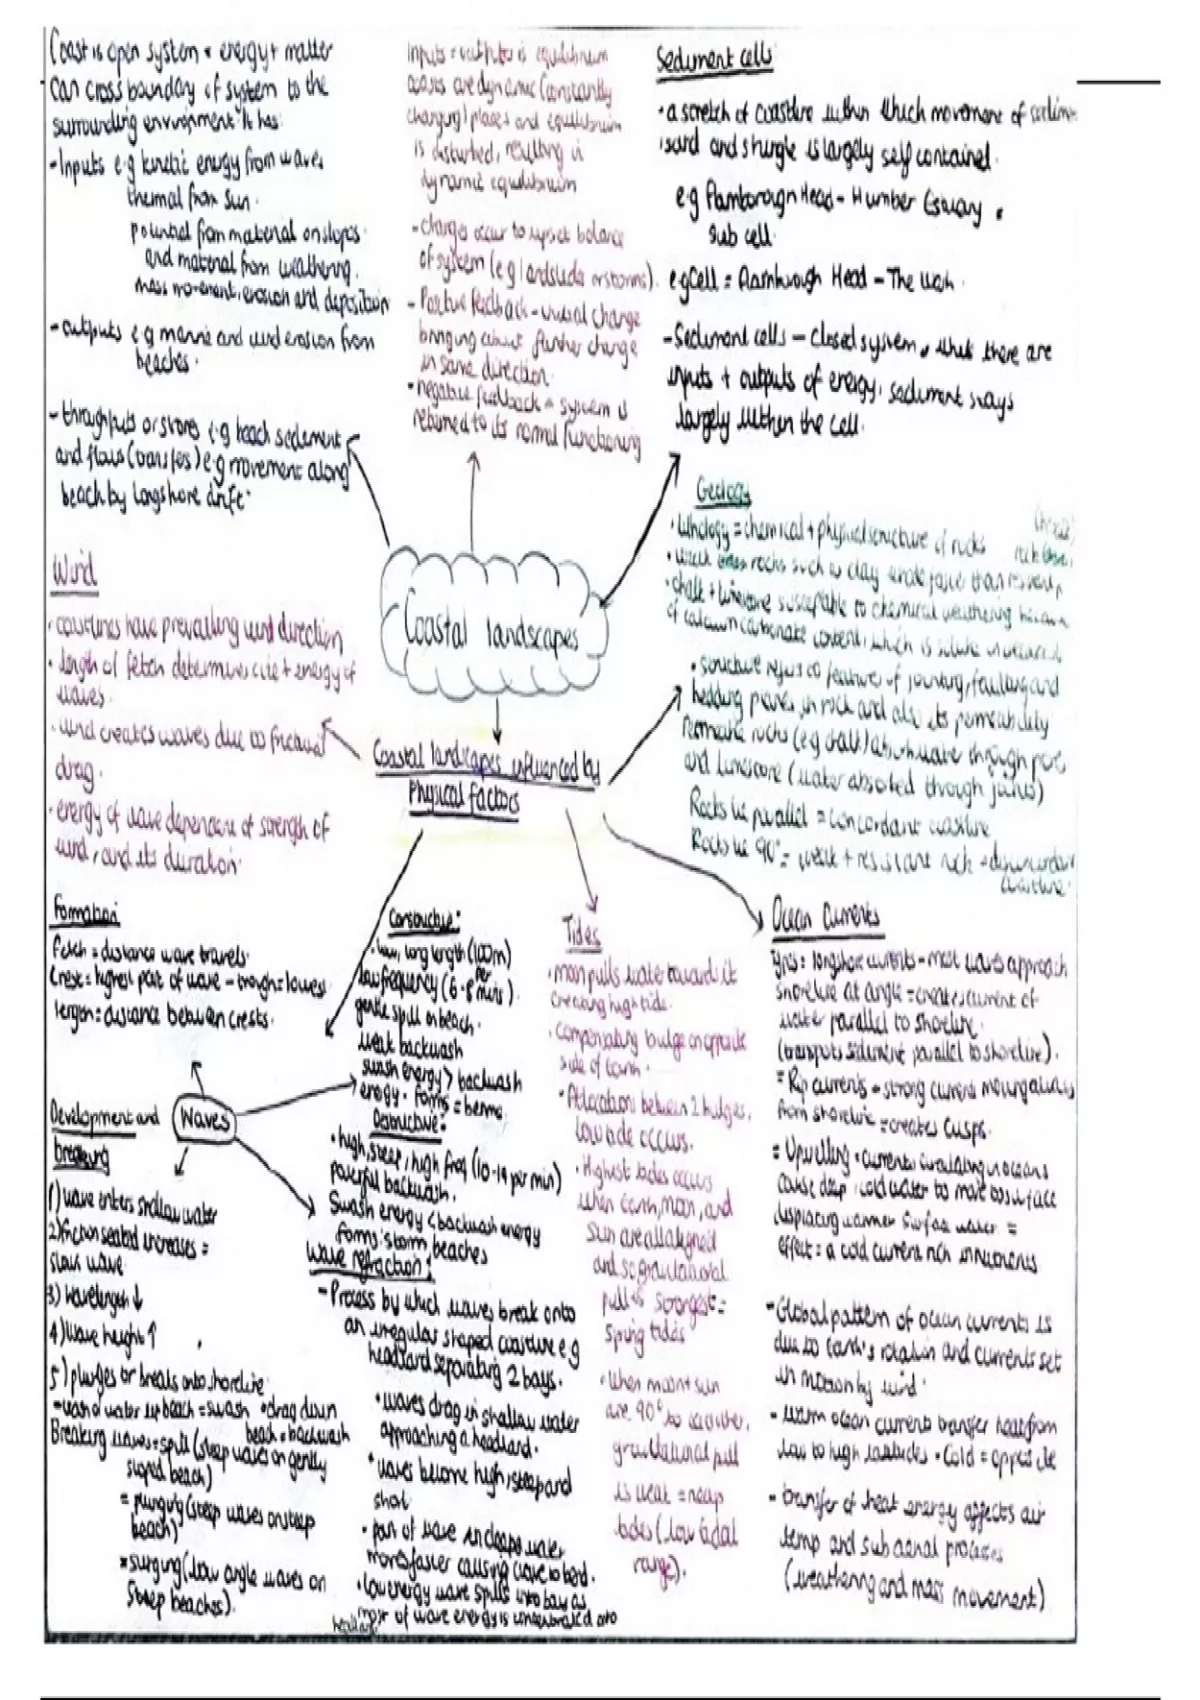 Coast is open system = energy + matter
can cross boundary of system to the
surrounding environment. It has:
- Inputs e.g kinetic energy from waves
thermal from sun.
potential from material on slopes
and material from weathering,
mass movement, erosion and deposition
- outputs e.g marine and wind erosion from
beaches.
- throughputs or stores e.g beach sediment
and flows (transfers) e.g movement along
beach by longshore drift.
Inputs = outputs is equilibrium
coasts are dynamic (constantly
changing) places and equilibrium
is disturbed, resulting in
dynamic equilibrium
- changes occur to upset balance
of system (e.g landslide or storms).
- Positive feedback - initial change
bringing about further change
in same direction.
• negative feedback = system is
returned to its normal functioning
Sediment cells
• a stretch of coastline within which movement of
sand and shingle is largely self contained.
e.g Flamborough Head - Humber Estuary
sub cell.
e.g Cell = Flamborough Head - The Wash.
- Sediment cells - closed system, while there are
inputs + outputs of energy, sediment stays
largely within the cell.
Coastal landscapes
Coastal landscapes influenced by
Physical factors
Geology
• lithology = chemical + physical structure of rocks
• weak rocks such as clay erode faster than resistant
• chalk + limestone susceptible to chemical weathering because
of calcium carbonate content, which is soluble in
• structure refers to features of jointing, faulting and
bedding planes in rock and also its permeability
Permeable rocks (e.g chalk) absorb water through pores
and limestone (water absorbed through joints)
Rocks lie parallel = concordant coastline
Rocks lie 90° = weak + resistant rock = discordant
coastline.
Wind
• coastlines have prevailing wind direction
• length of fetch determines size + energy of
waves.
• wind creates waves due to frictional
drag.
• energy of wave dependent of strength of
wind, and its duration.
Formation
Fetch = distance wave travels.
Crest = highest part of wave - trough = lowest
length = distance between crests.
Waves
Development and
breaking
1) wave enters shallow water
2) friction seabed increases =
slows wave
3) wavelength ↓
4) wave height ↑
5) plunges or breaks onto shoreline
= wash of water up beach = swash • drag down
beach = backwash
Breaking waves = spill (steep waves on gently
sloped beach)
= plunging (steep waves on steep
beach)
= surging (low angle waves on
steep beaches).
Constructive:
• low, long length (100m)
low frequency (6-8 per
mins).
gentle spill on beach.
weak backwash
swash energy > backwash
energy. forms = berms
Destructive:
• high, steep, high freq (10-14 per min)
powerful backwash.
Swash energy < backwash energy
forms: storm beaches
Wave refraction:
- Process by which waves break onto
an irregular shaped coastline e.g
headland separating 2 bays.
• waves drag in shallow water
approaching a headland.
• waves become high, steep and
short
• part of wave in deeper water
moves faster causing wave to bend.
• low energy wave spills into bay as
most of wave energy is concentrated onto
headland
Tides
• moon pulls water towards it
creating high tide.
• compensating bulge on opposite
side of Earth.
• At location between 2 bulges,
low tide occurs.
• Highest tides occurs
when earth, moon, and
sun are all aligned
and so gravitational
pull is strongest =
spring tides
• When moon + sun
are 90° to each other,
gravitational pull
is weak = neap
tides (low tidal
range).
Ocean Currents
longshore currents - most waves approach
shoreline at angle = creates current of
water parallel to shoreline.
(transports sediment parallel to shoreline).
= Rip currents - strong current moving away
from shoreline = creates cusps.
= Upwelling • currents circulating in oceans
cause deep, cold water to move to surface
displacing warmer surface water. =
effect: a cold current rich in nutrients
- Global pattern of ocean currents is
due to Earth's rotation and currents set
in motion by wind.
- warm ocean current transfer heat from
low to high latitudes • Cold = opposite
- transfer of heat energy affects air
temp and sub aerial processes
(weathering and mass movement)